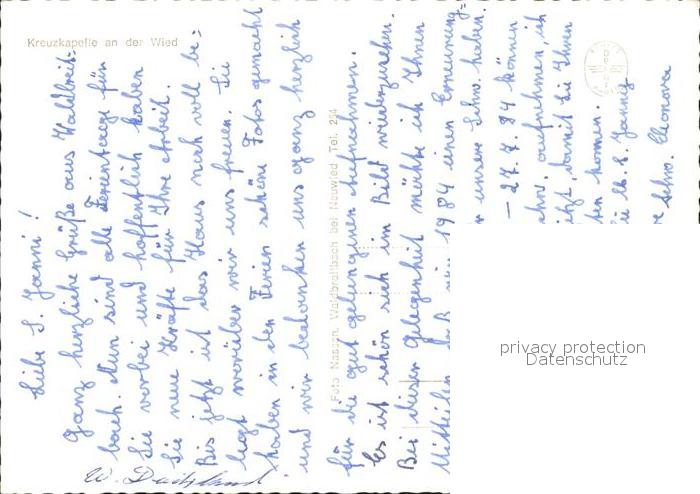 Kreuzkapelle an der Wied
Liebe S. Janni!
Ganz herzliche Grüße aus Waldbreit-
bach. Nun sind alle Ferientage für
Sie vorbei und hoffentlich haben
Sie neue Kräfte für Ihre Arbeit.
Bis jetzt ist das Haus noch voll be-
legt worüber wir uns freuen. Sie
haben in den Ferien schöne Fotos gemacht
und wir bedanken uns ganz herzlich
Foto Nassen, Waldbreitbach bei Neuwied Tel. 254
für die gut gelungenen Aufnahmen.
Es ist schön sich im Bild wiederzusehen.
Bei dieser Gelegenheit möchte ich Ihnen
Mitteilen daß wir 1984 einen Erneuerung-
unsere Schw. haben.
– 27.7.84 können
aufnehmen ich
jetzt, damit Sie Ihnen
kommen.
lb. S. Janni
Schw. Eleonora
W.
privacy protection
Datenschutz